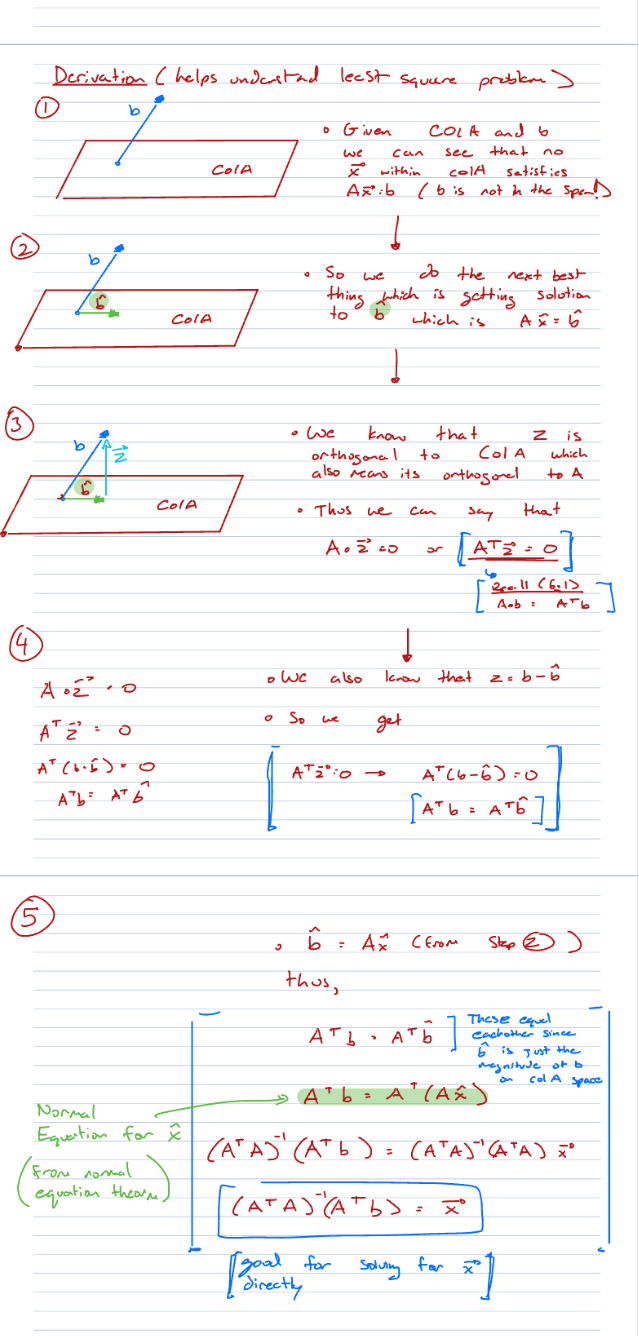 Derivation (helps understad least square problem)
①
b
ColA
• Given COLA and b
we can see that no
x⃗ within colA satisfies
Ax⃗ = b (b is not in the span!)
②
b
b̂
ColA
• So we do the next best
thing which is getting solution
to b̂ which is A x̂ = b̂
③
b
z⃗
b̂
ColA
• We know that z is
orthogonal to ColA which
also means its orthogonal to A
• Thus we can say that
A • z⃗ = 0 or [Aᵀz⃗ = 0]
[recall (6.1)
A•b = Aᵀb]
④
A • z⃗ = 0
Aᵀ z⃗ = 0
Aᵀ(b-b̂) = 0
Aᵀb = Aᵀb̂
• We also know that z = b - b̂
• So we get
Aᵀz⃗ = 0 → Aᵀ(b-b̂) = 0
[Aᵀb = Aᵀb̂]
⑤
• b̂ = Ax̂ (from step ②)
thus,
Aᵀb = Aᵀb̂
] These equal
eachother since
b̂ is just the
magnitude of b
on colA space
Aᵀb = Aᵀ(Ax̂)
Normal
Equation for x̂
(From normal
equation theorm)
(AᵀA)⁻¹(Aᵀb) = (AᵀA)⁻¹(AᵀA) x⃗
(AᵀA)⁻¹(Aᵀb) = x⃗
[good for solving for x⃗
directly]